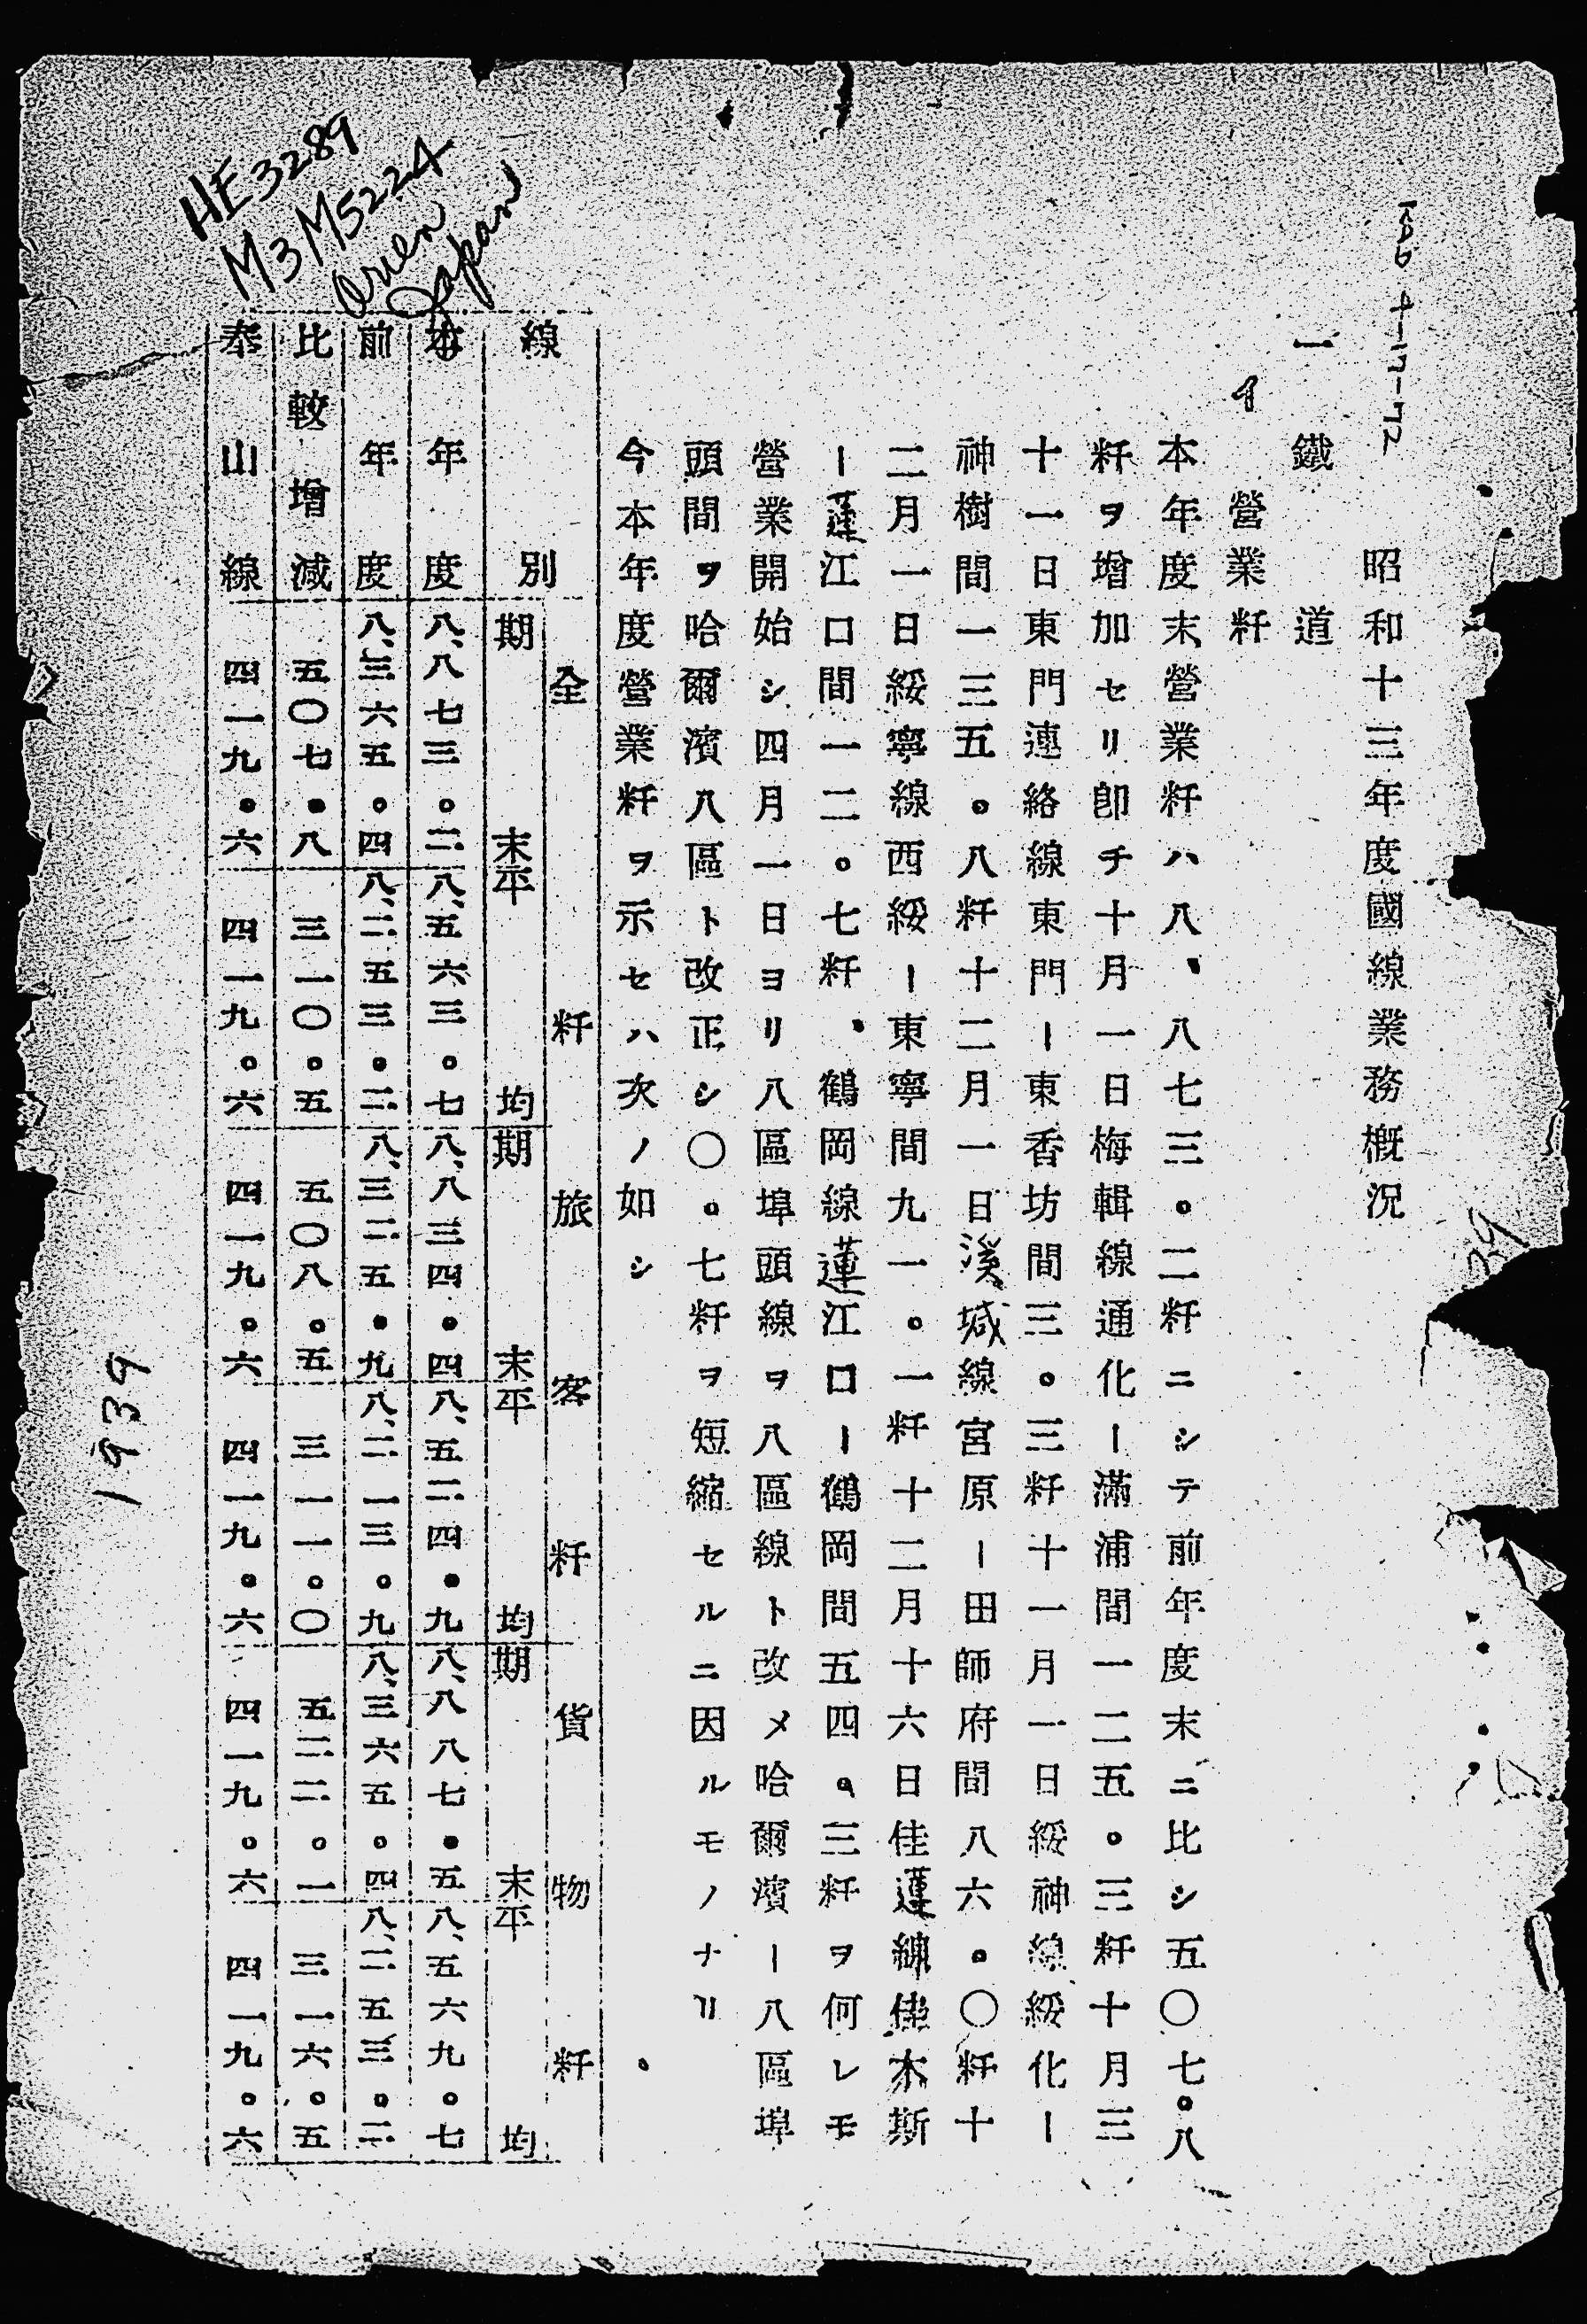 昭和十三年度國線業務概況
一 鐵道
イ 營業粁
本年度末營業粁ハ八、八七三。二粁ニシテ前年度末ニ比シ五〇七。八
粁ヲ增加セリ卽チ十月一日梅輯線通化ー滿浦間一二五。三粁十月三
十一日東門連絡線東門ー東香坊間三。三粁十一月一日綏神線綏化ー
神樹間一三五。八粁十二月一日溪城線宮原ー田師府間八六。〇粁十
二月一日綏寧線西綏ー東寧間九一。一粁十二月十六日佳蓮線佳木斯
ー蓮江口間一二。七粁、鶴岡線蓮江口ー鶴岡間五四。三粁ヲ何レモ
營業開始シ四月一日ヨリ八區埠頭線ヲ八區線ト改メ哈爾濱ー八區埠
頭間ヲ哈爾濱八區ト改正シ〇。七粁ヲ短縮セルニ因ルモノナリ
今本年度營業粁ヲ示セハ次ノ如シ。
線別 全粁 旅客粁 貨物粁
期末 平均 期末 平均 期末 平均
本年度 八、八七三。二 八、五六三。七 八、八三四。四 八、五二四。九 八、八八七。五 八、五六九。七
前年度 八、三六五。四 八、二五三。二 八、三二五。九 八、二一三。九 八、三六五。四 八、二五三。二
比較增減 五〇七。八 三一〇。五 五〇八。五 三一一。〇 五二二。一 三一六。五
奉山線 四一九。六 四一九。六 四一九。六 四一九。六 四一九。六 四一九。六
HE3289
M3M5224
Orien
Japan
1939
39